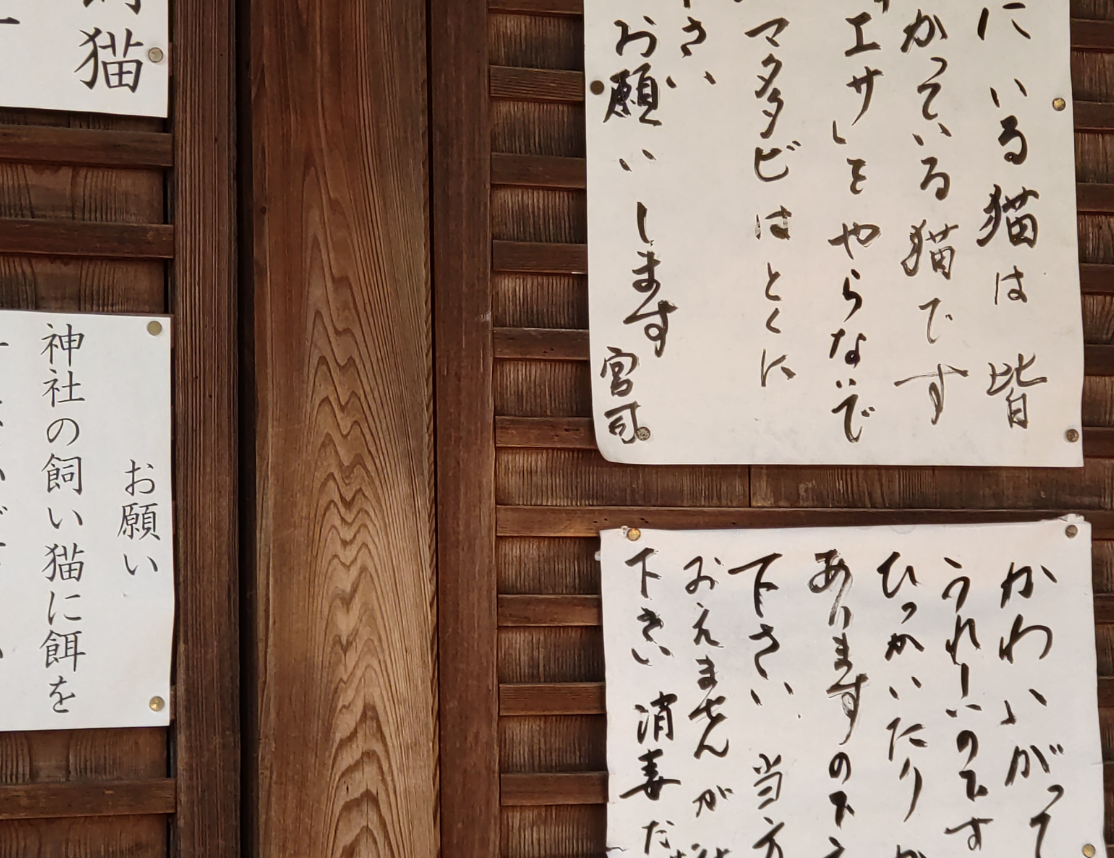 にいる猫は 皆
かっている猫です
「エサ」をやらないで
マタタビはとくに
さい
お願いします
宮司
かわいがって
うれしいのです
ひっかいたり
ありますので
下さい 当方
おえませんが
下さい 消毒だ
猫
お願い
神社の飼い猫に餌を